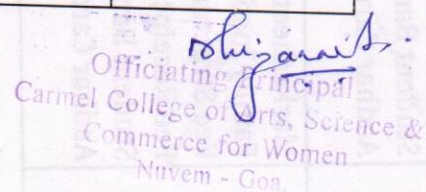 Officiating Principal
Carmel College of Arts, Science &
Commerce for Women
Nuvem - Goa.